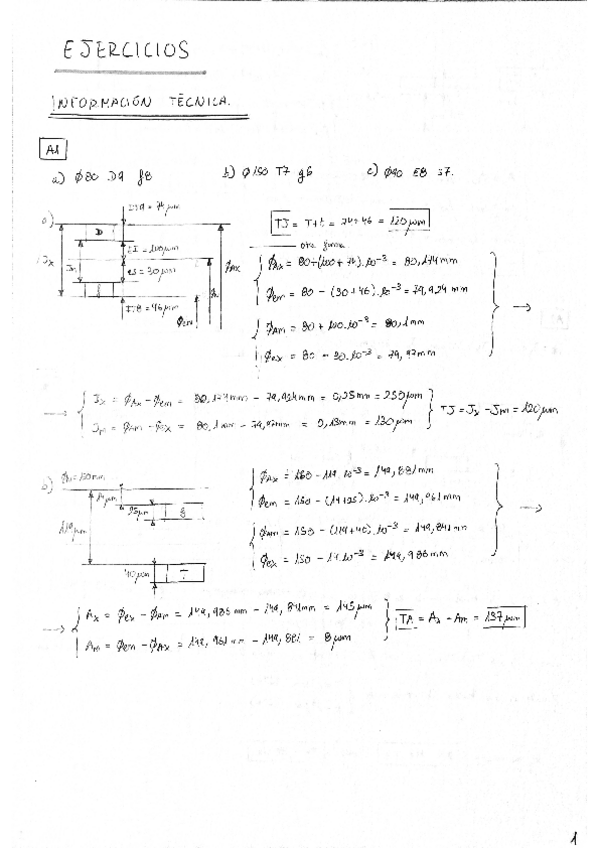 EJERCICIOS
INFORMACIÓN TÉCNICA.
A1
a) Ø80 D9 f8 b) Ø150 T7 g6 c) Ø90 E8 s7.
a)
D
EI = 100μm
es = 30μm
IT8 = 46μm
ØAx
Øem
TJ = T+t = 74+46 = 120μm
otra forma
ØAx = 80+(100+74)·10⁻³ = 80,174mm
Øem = 80 - (30+46)·10⁻³ = 79,924 mm
ØAm = 80 + 100·10⁻³ = 80,1mm
Øex = 80 - 30·10⁻³ = 79,97mm
Jx = ØAx - Øem = 80,174mm - 79,924mm = 0,25mm = 250μm
Jm = ØAm - Øex = 80,1mm - 79,97mm = 0,13mm = 130μm
TJ = Jx - Jm = 120μm
b)
14μm
25μm
119μm
40μm
T
ØAx = 150 - 119·10⁻³ = 149,881mm
Øem = 150 - (14+25)·10⁻³ = 149,961mm
ØAm = 150 - (119+40)·10⁻³ = 149,841mm
Øex = 150 - 14·10⁻³ = 149,986mm
Ax = Øex - ØAm = 149,986mm - 149,841mm = 145μm
Am = Øem - ØAx = 149,961mm - 149,881 = 8μm
TA = Ax - Am = 137μm
1